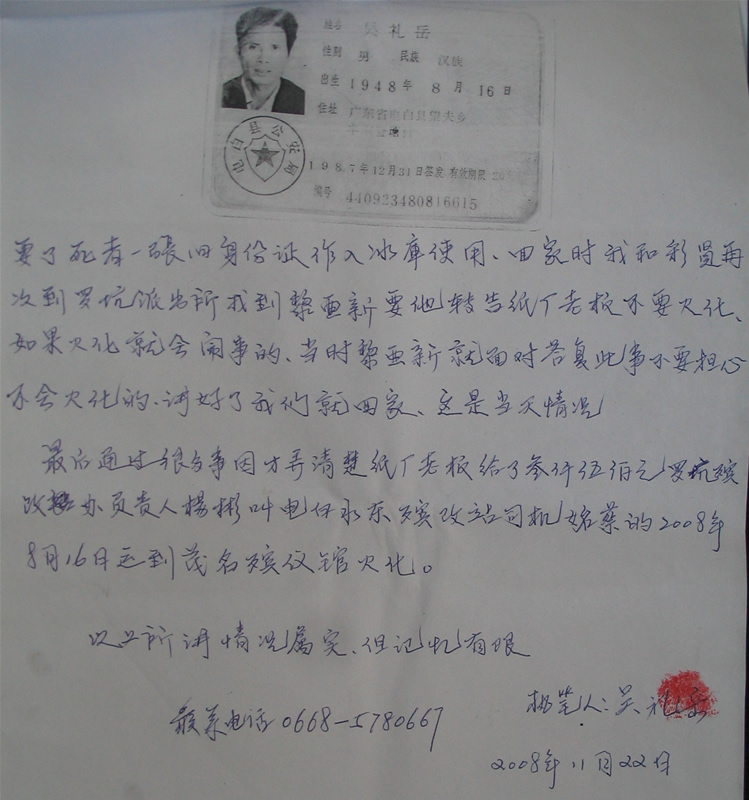 姓名 吴礼岳
性别 男 民族 汉族
出生 1948年8月16日
住址 广东省电白县望夫乡
电白县公安局
1987年12月31日签发 有效期限 20
编号 440923480816615
要了死者一張旧身份证作入冰庫使用、回家时我和彩贤再
次到罗坑派出所找到黎亚新要他转告纸厂老板不要火化、
如果火化就会闹事的、当时黎亚新就面对答复此事不要担心
不会火化的、讲好了我们就回家、这是当天情况
最后通过很多事因才弄清楚纸厂老板给了叁仟伍佰元罗坑殡
改办负责人楊彬叫电白永东殡改站司机姓蔡的2008年
8月16日运到茂名殡仪馆火化。
以上所讲情况属实、但记忆有限
联系电话0668-5780667
执笔人:吴礼岳
2008年11月22日